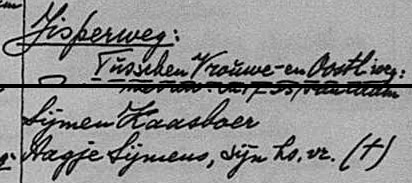 Jisperweg:
Tusschen Vrouwe- en Oostl. weg:
Sijmen Haasboer
Aagje Sijmens, zijn hs. vr. (†)